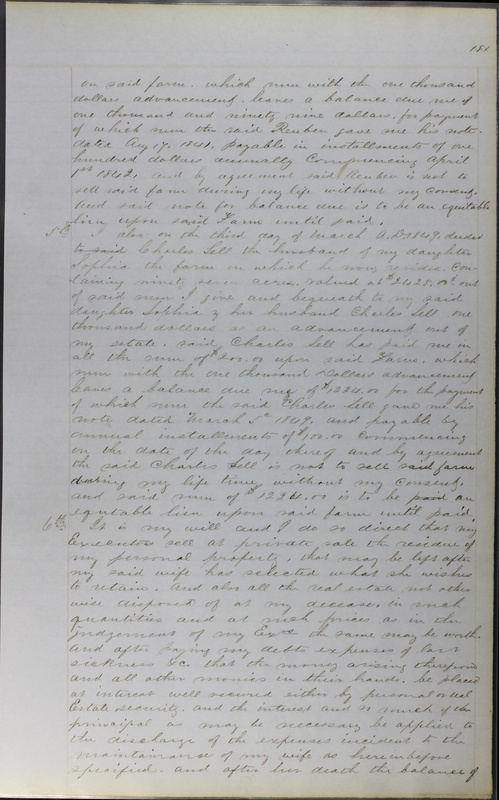 181
on said farm. which sum with the one thousand
dollars advancement. leaves a balance due me of
one thousand and ninety nine dollars. for payment
of which sum the said Reuben gave me his note.
dated Aug 17. 1841. payable in installments of one
hundred dollars annually Commencing April
1st 1842. and by agreement said Reuben is not to
sell said farm during my life without my consent.
And said note for balance due is to be an equitable
lien upon said Farm until paid.
5th also on the third day of March A.D. 1849. deeded
to said Charles Sell the husband of my daughter
Sophia the farm on which he now resides. Con-
taining ninety seven acres. valued at $2428.00 out
of said sum I give and bequeath to my said
daughter Sophia & her husband Charles Sell one
thousand dollars as an advancement out of
my estate. said Charles Sell has paid me in
all the sum of $200.00 upon said Farm. which
sum with the one thousand Dollars advancement
leaves a balance due me of $1224.00 for the payment
of which sum the said Charles Sell gave me his
note dated March 5th 1849. and payable by
annual installments of $100.00 commencing
on the date of the day thereof and by agreement
the said Charles Sell is not to sell said farm
during my life time without my consent,
and said sum of $1224.00 is to be paid an
equitable lien upon said farm until paid.
6th It is my will and I do so direct that my
Executors sell at private sale the residue of
my personal property, that may be left after
my said wife has selected what she wishes
to retain. And also all the real estate not other
wise disposed of at my decease, in such
quantities and at such prices as in the
judgement of my Exors the same may be worth.
and after paying my debts expenses of last
sickness &c. that the money arising therefrom
and all other monies in their hands. be placed
at interest well secured either by personal or real
Estate security. and the interest and so much of the
principal as may be necessary be applied to
the discharge of the expenses incident to the
maintainance of my wife as hereinbefore
specified. and after her death the balance of